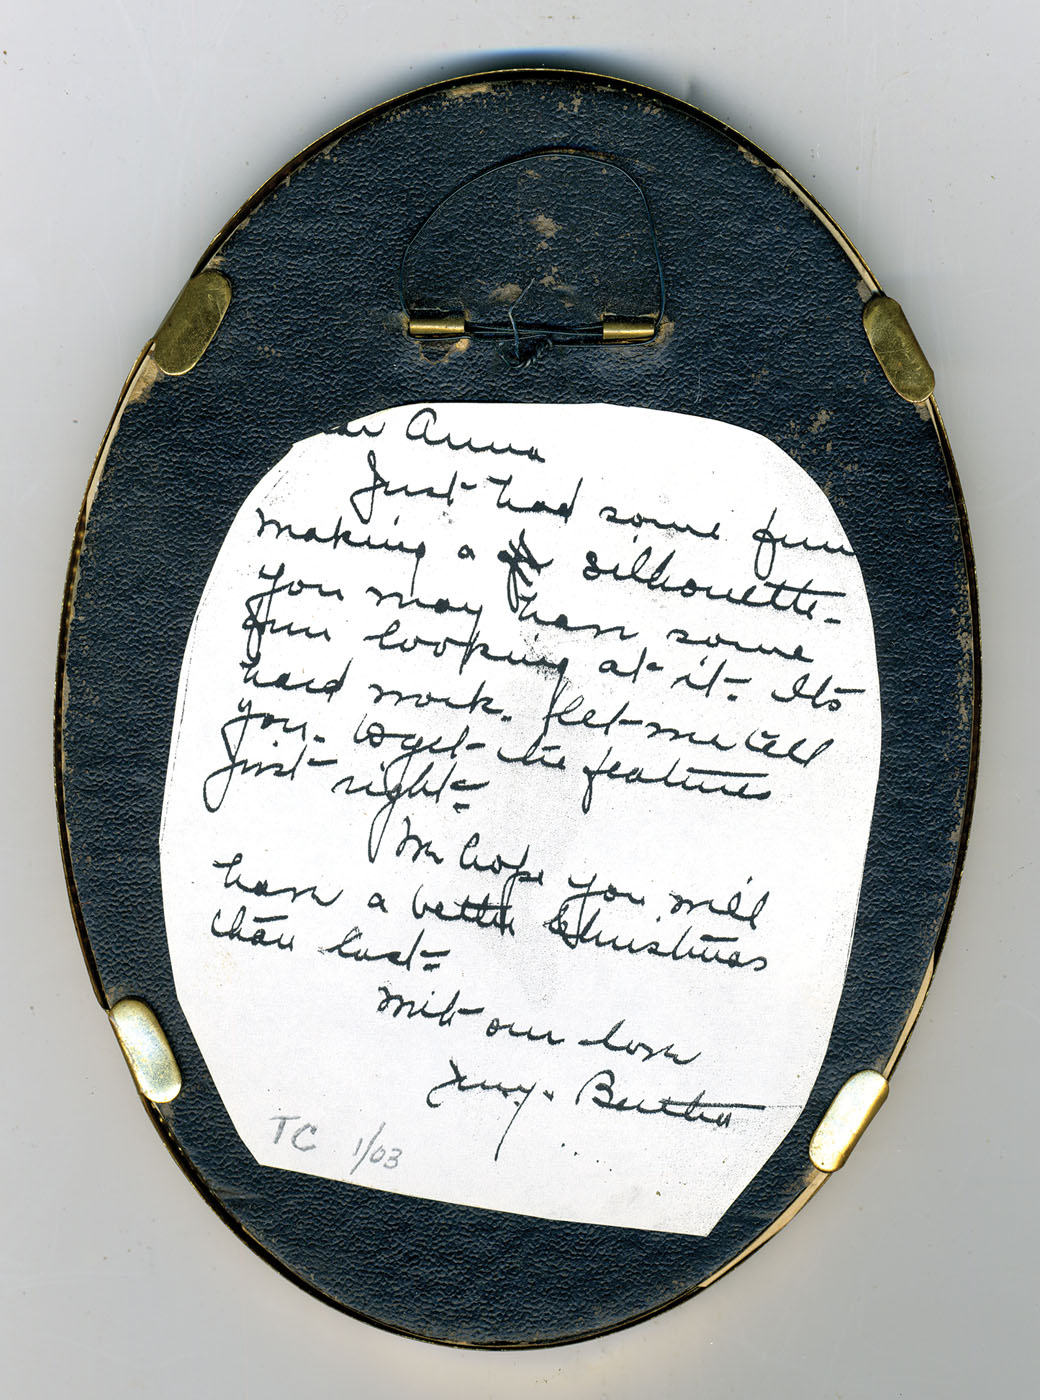 Anna
Just had some fun
making a silhouette.
You may have some
fun looking at it. Its
hard work. let me tell
you. to get the features
just right.
We hope you will
have a better Christmas
than last.
Mit our love
Bertha
TC 1/03